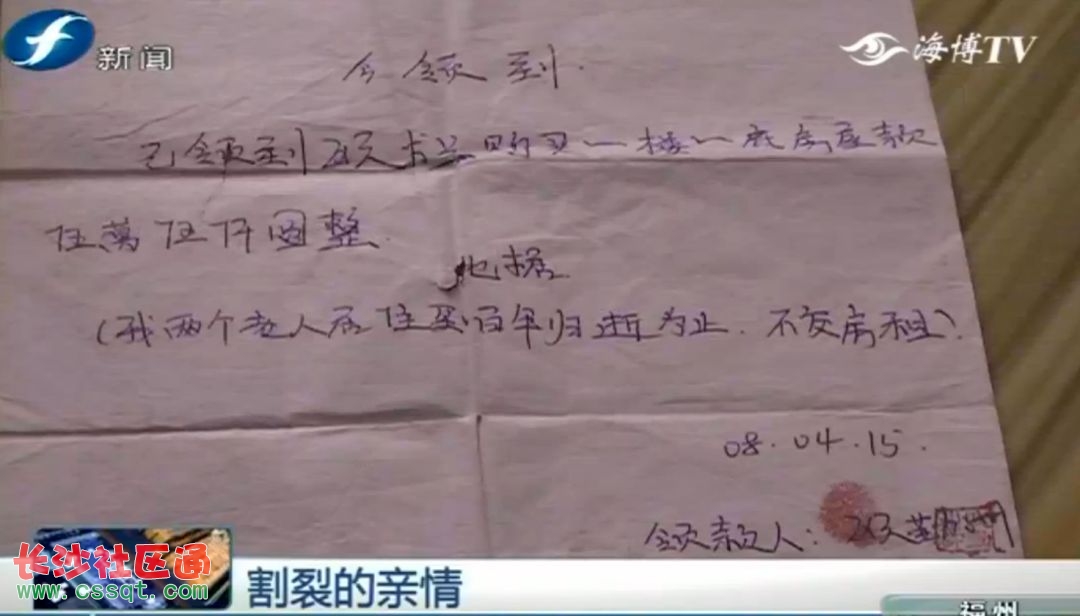 新闻
海博TV
今领到.
已领到 购买一楼一底房屋款
伍萬伍仟圆整.
地擔
(我两个老人居住至百年归逝为止.不交房租)
08.04.15.
领款人:
长沙社区通
www.cssqt.com
割裂的亲情
福州